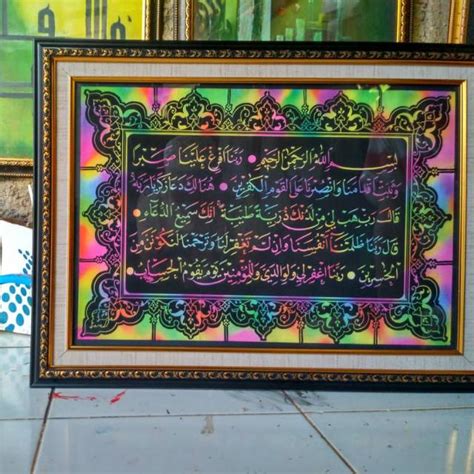 بسم الله الرحمن الرحيم • ربنا افرغ علينا صبرا
وثبت اقدامنا وانصرنا على القوم الكفرين • هنالك دعا زكريا ربه •
قال رب هب لي من لدنك ذرية طيبة • انك سميع الدعاء •
قال ربنا ظلمنا انفسنا وان لم تغفر لنا وترحمنا لنكونن من
الخسرين • ربنا اغفر لي ولوالدي وللمؤمنين يوم يقوم الحساب